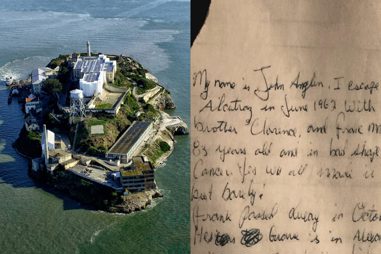 My name is John Anglin. I escape
Alcatraz in June 1962 with
brother Clarence, and Frank M
83 years old and in bad shape.
Cancer. Yes we all made it
but barely.
Frank passed away in Octob
His grave is in Alexan